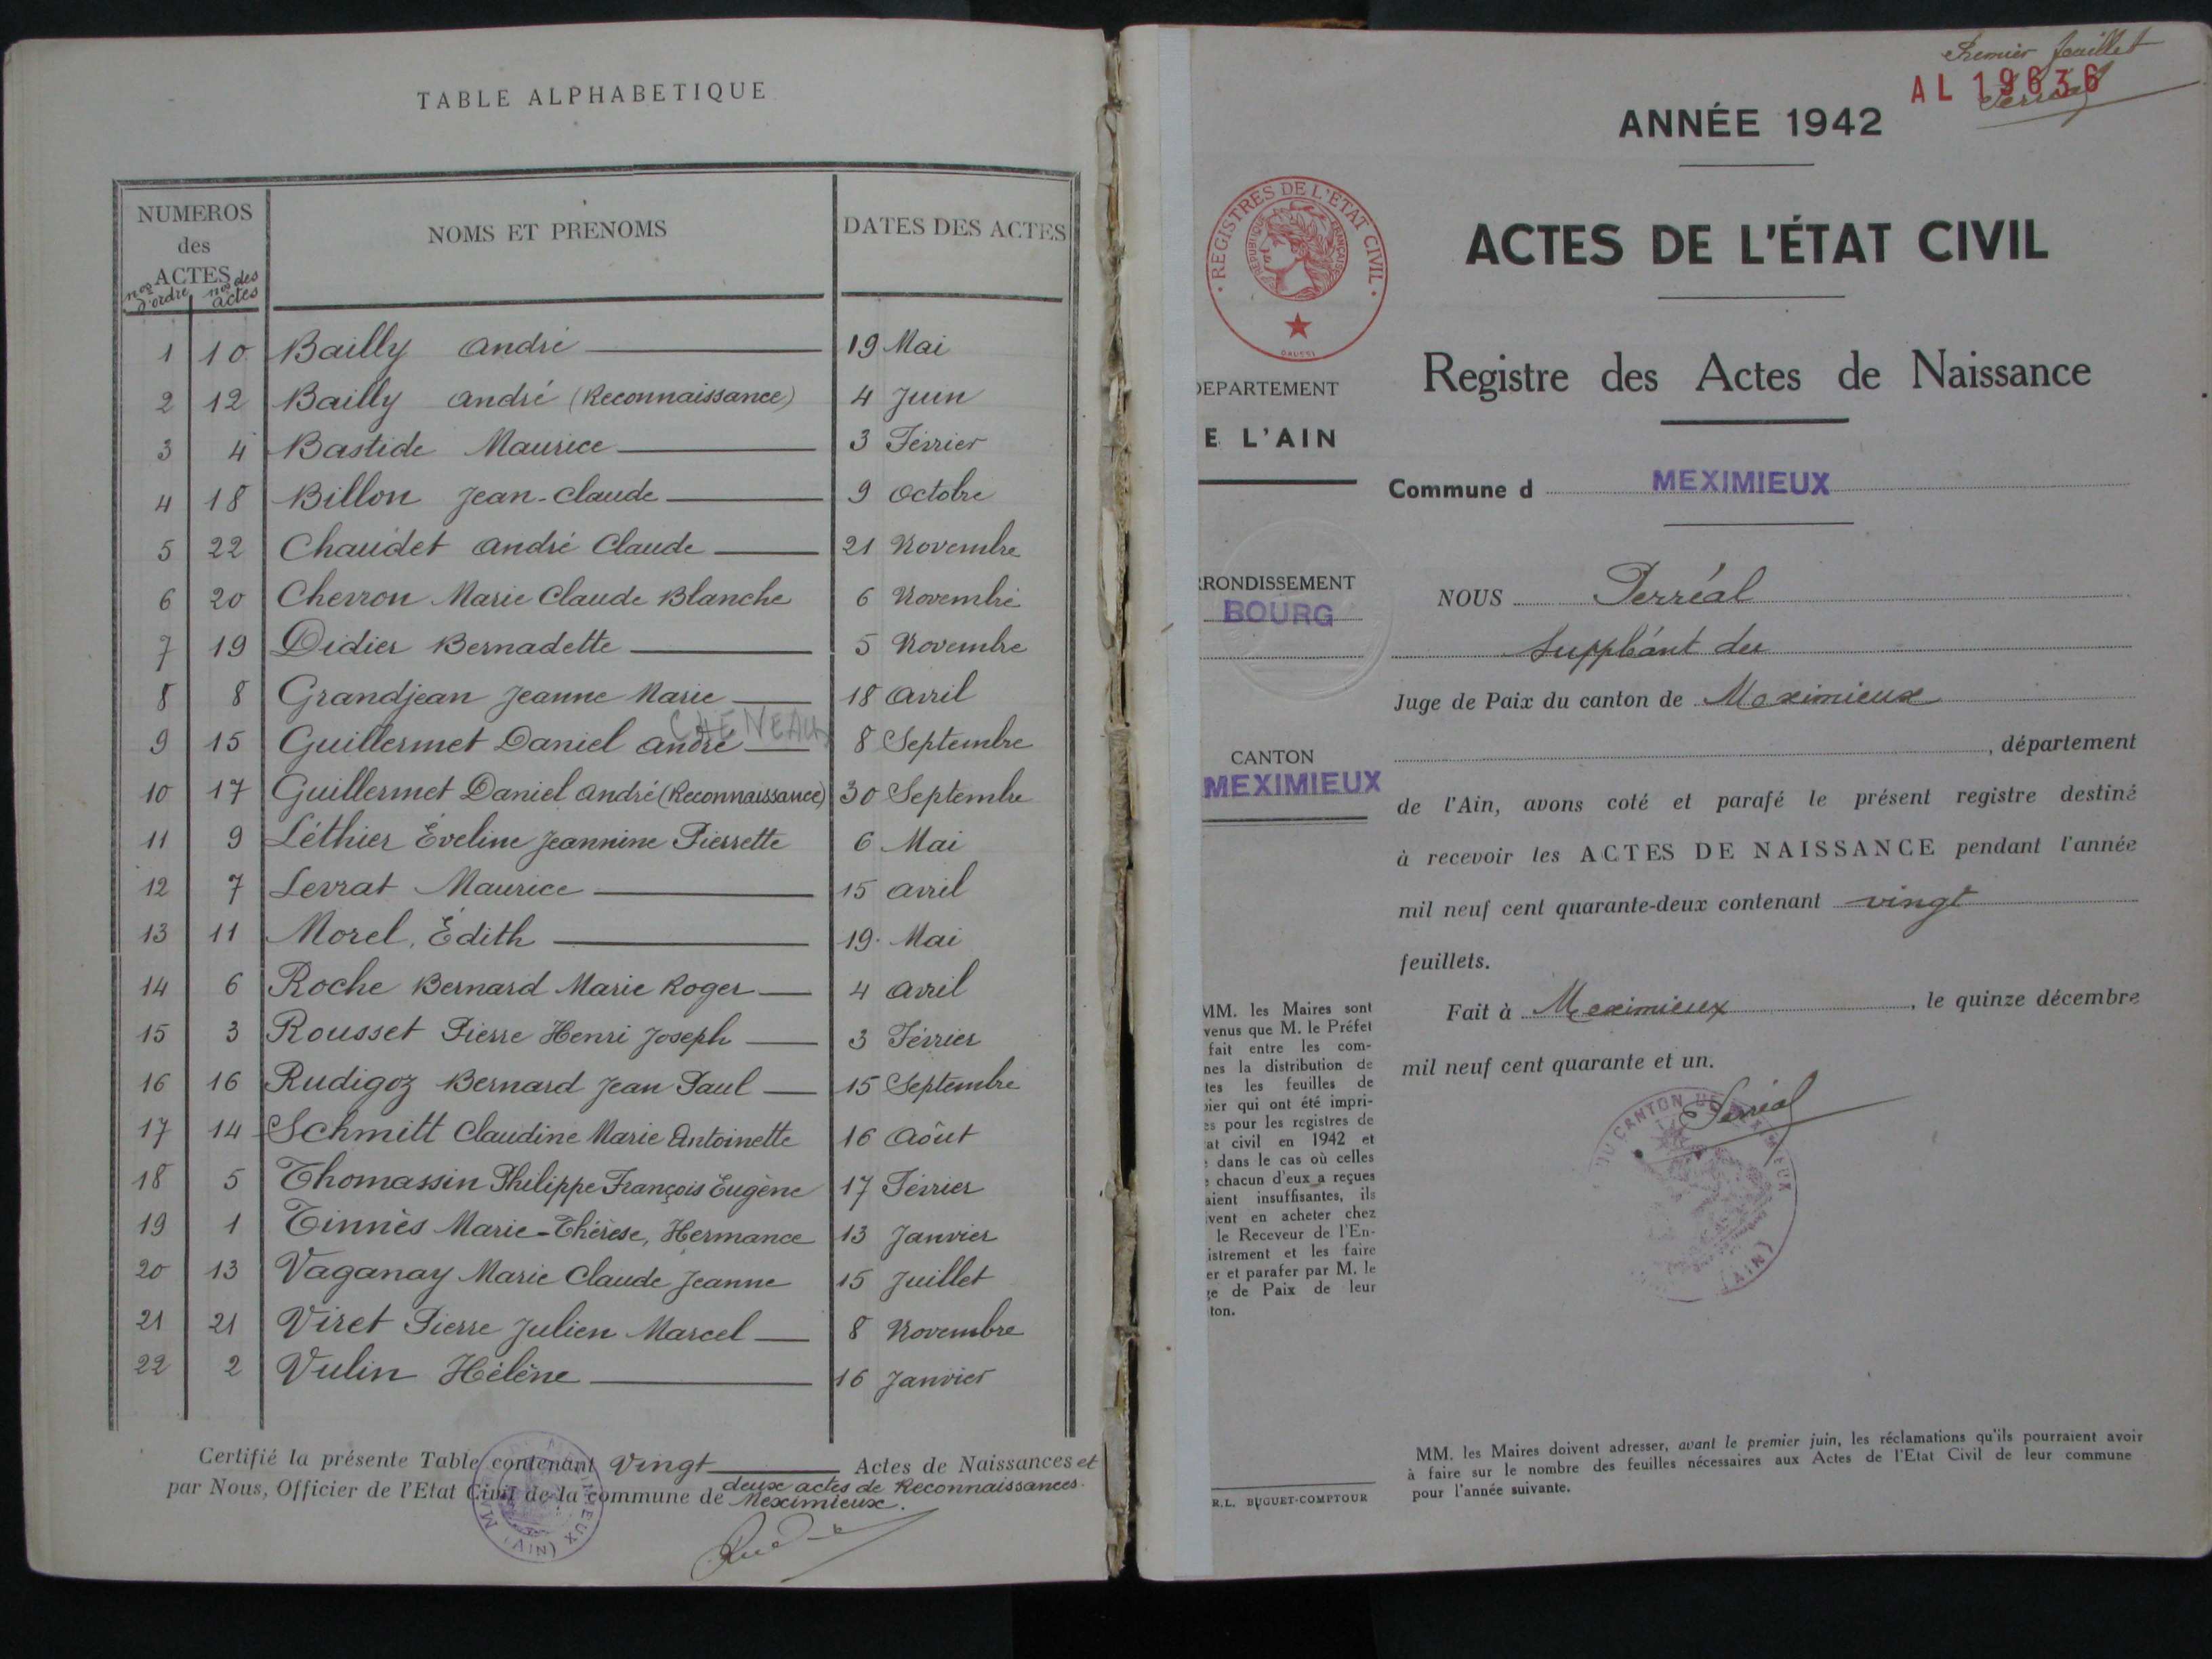 TABLE ALPHABETIQUE
NUMEROS
des
ACTES
nos d'ordre
nos des actes
NOMS ET PRENOMS
DATES DES ACTES
1 10 Bailly André 19 Mai
2 12 Bailly André (Reconnaissance) 4 Juin
3 4 Bastide Maurice 3 Février
4 18 Billon Jean-Claude 9 Octobre
5 22 Chaudet André Claude 21 Novembre
6 20 Chevron Marie Claude Blanche 6 Novembre
7 19 Didier Bernadette 5 Novembre
8 8 Grandjean Jeanne Marie 18 Avril
CHENEAUX
9 15 Guillermet Daniel André 8 Septembre
10 17 Guillermet Daniel André (Reconnaissance) 30 Septembre
11 9 Léthier Éveline Jeannine Pierrette 6 Mai
12 7 Levrat Maurice 15 Avril
13 11 Morel, Édith 19. Mai
14 6 Roche Bernard Marie Roger 4 Avril
15 3 Rousset Pierre Henri Joseph 3 Février
16 16 Rudigoz Bernard Jean Paul 15 Septembre
17 14 Schmitt Claudine Marie Antoinette 16 Août
18 5 Thomassin Philippe François Eugène 17 Février
19 1 Tinnès Marie-Thérèse, Hermance 13 Janvier
20 13 Vaganay Marie Claude Jeanne 15 Juillet
21 21 Viret Pierre Julien Marcel 8 Novembre
22 2 Vulin Hélène 16 Janvier
Certifié la présente Table contenant Vingt Actes de Naissances et
deux actes de Reconnaissances.
par Nous, Officier de l'Etat Civil de la commune de Meximieux.
Premier feuillet
AL 19636
Perréal
ANNÉE 1942
ACTES DE L'ÉTAT CIVIL
REGISTRES DE L'ÉTAT CIVIL
REPUBLIQUE FRANÇAISE
Registre des Actes de Naissance
DEPARTEMENT
E L'AIN
Commune d MEXIMIEUX
RRONDISSEMENT
BOURG
CANTON
MEXIMIEUX
NOUS Perréal
Suppléant du
Juge de Paix du canton de Meximieux
, département
de l'Ain, avons coté et parafé le présent registre destiné
à recevoir les ACTES DE NAISSANCE pendant l'année
mil neuf cent quarante-deux contenant vingt
feuillets.
Fait à Meximieux, le quinze décembre
mil neuf cent quarante et un.
Perréal
DU CANTON DE MEXIMIEUX
(AIN)
MM. les Maires sont
venus que M. le Préfet
fait entre les com-
nes la distribution de
tes les feuilles de
pier qui ont été impri-
es pour les registres de
at civil en 1942 et
e dans le cas où celles
e chacun d'eux a reçues
aient insuffisantes, ils
ivent en acheter chez
le Receveur de l'En-
istrement et les faire
er et parafer par M. le
ge de Paix de leur
ton.
R.L. BUGUET-COMPTOUR
MM. les Maires doivent adresser, avant le premier juin, les réclamations qu'ils pourraient avoir
à faire sur le nombre des feuilles nécessaires aux Actes de l'Etat Civil de leur commune
pour l'année suivante.